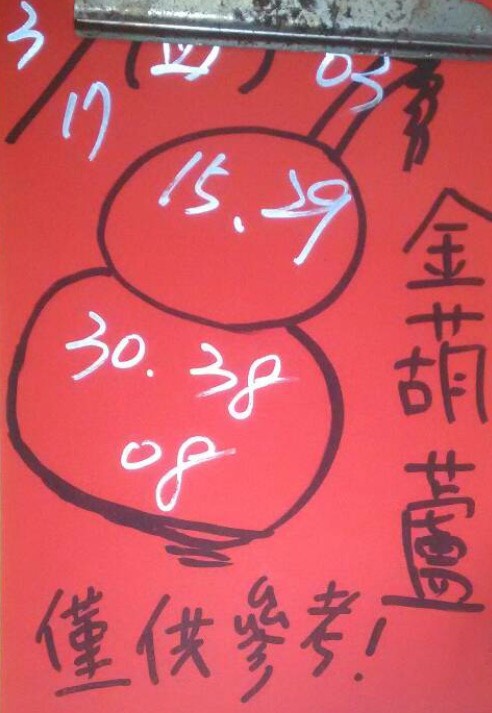 3/17(四) 03
15、29
30. 38
08
金葫蘆
僅供參考!